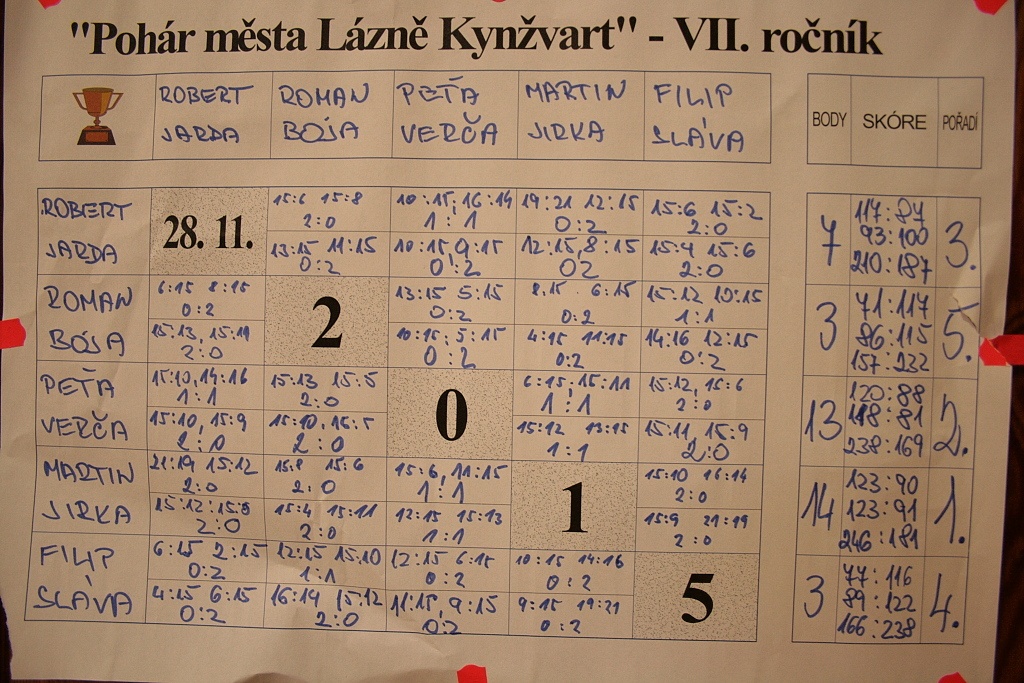 "Pohár města Lázně Kynžvart" - VII. ročník
ROBERT ROMAN PEŤA MARTIN FILIP
JARDA BÓJA VERČA JIRKA SLÁVA
BODY SKÓRE POŘADÍ
ROBERT 28. 11. 15:6 15:8 10:15, 16:14 19:21 12:15 15:6 15:2 117:87
2:0 1:1 0:2 2:0 7 93:100 3.
JARDA 13:15 11:15 10:15, 9:15 12:15, 8:15 15:4 15:6 210:187
0:2 0:2 02 2:0
ROMAN 6:15 8:15 2 13:15 5:15 8:15 6:15 15:12 10:15 71:117
0:2 0:2 0:2 1:1 3 86:115 5.
BÓJA 15:13, 15:19 10:15, 5:15 4:15 11:15 14:16 12:15 157:232
2:0 0:2 0:2 0:2
PEŤA 15:10, 14:16 15:13 15:5 0 6:15, 15:11 15:12, 15:6 120:88
1:1 2:0 1:1 2:0 13 118:81 2.
VERČA 15:10, 15:9 15:10, 15:5 15:12 13:15 15:11, 15:9 238:169
2:0 2:0 1:1 2:0
MARTIN 21:19 15:12 15:8 15:6 15:6, 11:15 1 15:10 16:14 123:90
2:0 2:0 1:1 2:0 14 123:91 1.
JIRKA 15:12, 15:8 15:4 15:11 12:15 15:13 15:9 21:19 246:181
2:0 2:0 1:1 2:0
FILIP 6:15 2:15 12:15 15:10 12:15 6:15 10:15 14:16 5 77:116
0:2 1:1 0:2 0:2 3 89:122 4.
SLÁVA 4:15 6:15 16:14 15:12 11:15, 9:15 9:15 19:21 166:238
0:2 2:0 0:2 0:2